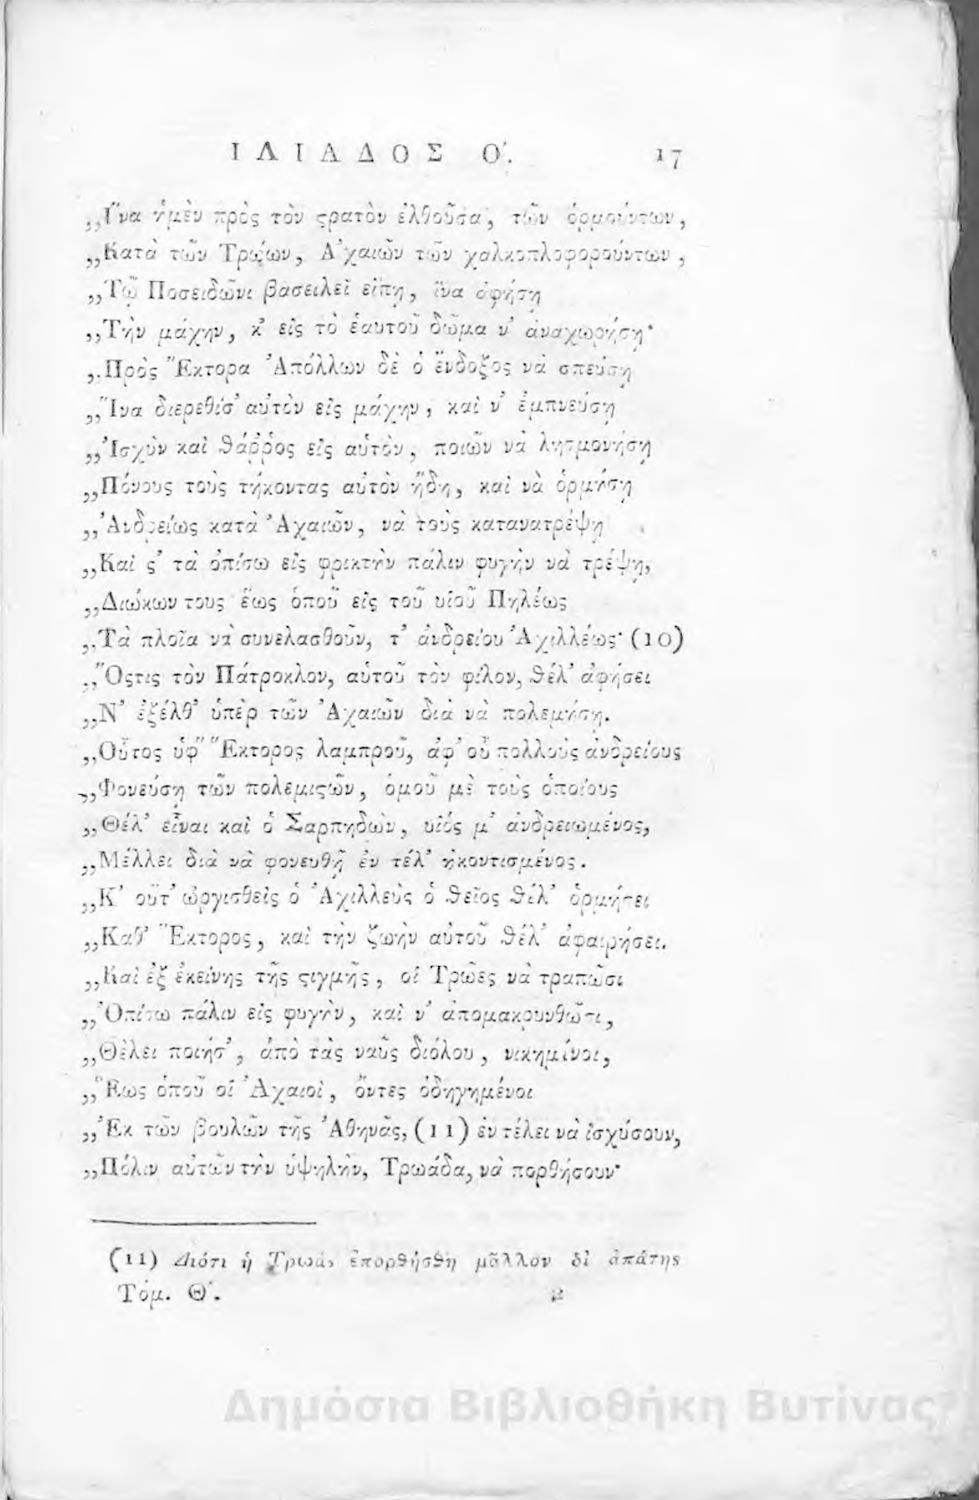 ΙΛΙΑΔΟΣ Ο΄. 17
„Ἵνα ἡμὲν πρὸς τὸν ϛρατὸν ἐλθοῦσα, τῶν ὁρμούντων,
„Κατὰ τῶν Τρώων, Ἀχαιῶν τῶν χαλκοπλοφορούντων,
„Τῷ Ποσειδῶνι βασιλεῖ εἴπῃ, ἵνα ἀφήσῃ
„Τὴν μάχην, κ᾽ εἰς τὸ ἑαυτοῦ δῶμα ν᾽ ἀναχωρήσῃ·
„Πρὸς Ἕκτορα Ἀπόλλων δὲ ὁ ἔνδοξος νὰ σπεύσῃ
„Ἵνα διερεθίσ᾽ αὐτὸν εἰς μάχην, καὶ ν᾽ ἐμπνεύσῃ
„Ἰσχὺν καὶ ϑάῤῥος εἰς αὐτὸν, ποιῶν νὰ λησμονήσῃ
„Πόνους τοὺς τήκοντας αὐτὸν ἤδη, καὶ νὰ ὁρμήσῃ
„Ἀνδρείως κατὰ Ἀχαιῶν, νὰ τοὺς κατανατρέψῃ
„Καὶ ϛ᾽ τὰ ὀπίσω εἰς φρικτὴν πάλιν φυγὴν νὰ τρέψῃ,
„Διώκων τους ἕως ὁποῦ εἰς τοῦ υἱοῦ Πηλέως
„Τὰ πλοῖα νὰ συνελασθοῦν, τ᾽ ἀνδρείου Ἀχιλλέως· (10)
„Ὅςτις τὸν Πάτροκλον, αὑτοῦ τὸν φίλον, ϑέλ᾽ ἀφήσει
„Ν᾽ ἐξέλθ᾽ ὑπὲρ τῶν Ἀχαιῶν διὰ νὰ πολεμήσῃ.
„Οὗτος ὑφ᾽ Ἕκτορος λαμπροῦ, ἀφ᾽ οὗ πολλοὺς ἀνδρείους
„Φονεύσῃ τῶν πολεμιϛῶν, ὁμοῦ μὲ τοὺς ὁποίους
„Θέλ᾽ εἶναι καὶ ὁ Σαρπηδὼν, υἱός μ᾽ ἀνδρειωμένος,
„Μέλλει διὰ νὰ φονευθῇ ἐν τέλ᾽ ἠκοντισμένος.
„Κ᾽ οὕτ᾽ ὠργισθεὶς ὁ Ἀχιλλεὺς ὁ ϑεῖος ϑέλ᾽ ὁρμήσει
„Καθ᾽ Ἕκτορος, καὶ τὴν ζωὴν αὐτοῦ ϑέλ᾽ ἀφαιρήσει.
„Καὶ ἐξ ἐκείνης τῆς ϛιγμῆς, οἱ Τρῶες νὰ τραπῶσι
„Ὀπίσω πάλιν εἰς φυγὴν, καὶ ν᾽ ἀπομακρυνθῶσι,
„Θέλει ποιήσ᾽, ἀπὸ τὰς ναῦς διόλου, νικημένοι,
„Ἕως ὁποῦ οἱ Ἀχαιοὶ, ὄντες ὁδηγημένοι
„Ἐκ τῶν βουλῶν τῆς Ἀθηνᾶς, (11) ἐν τέλει νὰ ἰσχύσουν,
„Πόλιν αὐτῶν τὴν ὑψηλὴν, Τρωάδα, νὰ πορθήσουν·
(11) Διότι ἡ Τρωὰς ἐπορθήσθη μᾶλλον δι᾽ ἀπάτης
Τόμ. Θ΄.
Δημόσια Βιβλιοθήκη Βυτίνας